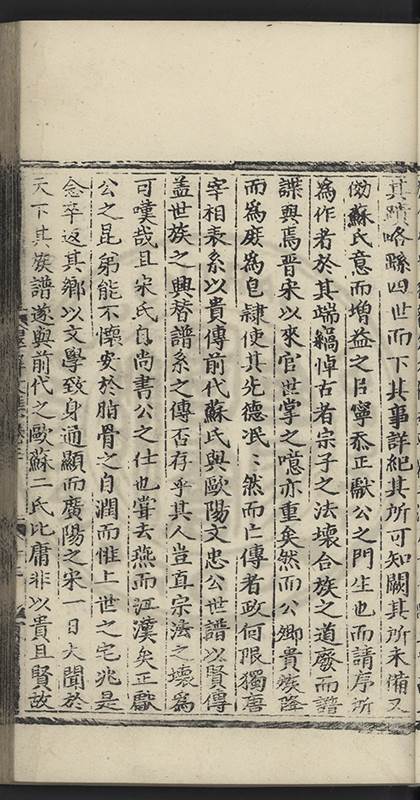 其蹟略縣四世而下其事詳紀其所可知闕其所未備又
倣蘇氏意而增益之臣寧忝正獻公之門生也而請序所
為作者於其端竊悼古者宗子之法壞合族之道廢而譜
諜興焉晉宋以來官世掌之噫亦重矣然而公卿貴族降
而為庶為皂隸使其先德泯〻然而亡傳者政何限獨唐
宰相表系以貴傳前代蘇氏與歐陽文忠公世譜以賢傳
盖世族之興替譜系之傳否存乎其人豈直宗法之壞為
可嘆哉且宋氏自尚書公之仕也嘗去燕而江漢矣正獻
公之昆弟能不懷安於脂骨之自潤而惟上世之宅兆是
念卒返其鄉以文學致身通顯而廣陽之宋一日大聞於
天下其族譜遂與前代之歐蘇二氏比庸非以貴且賢故